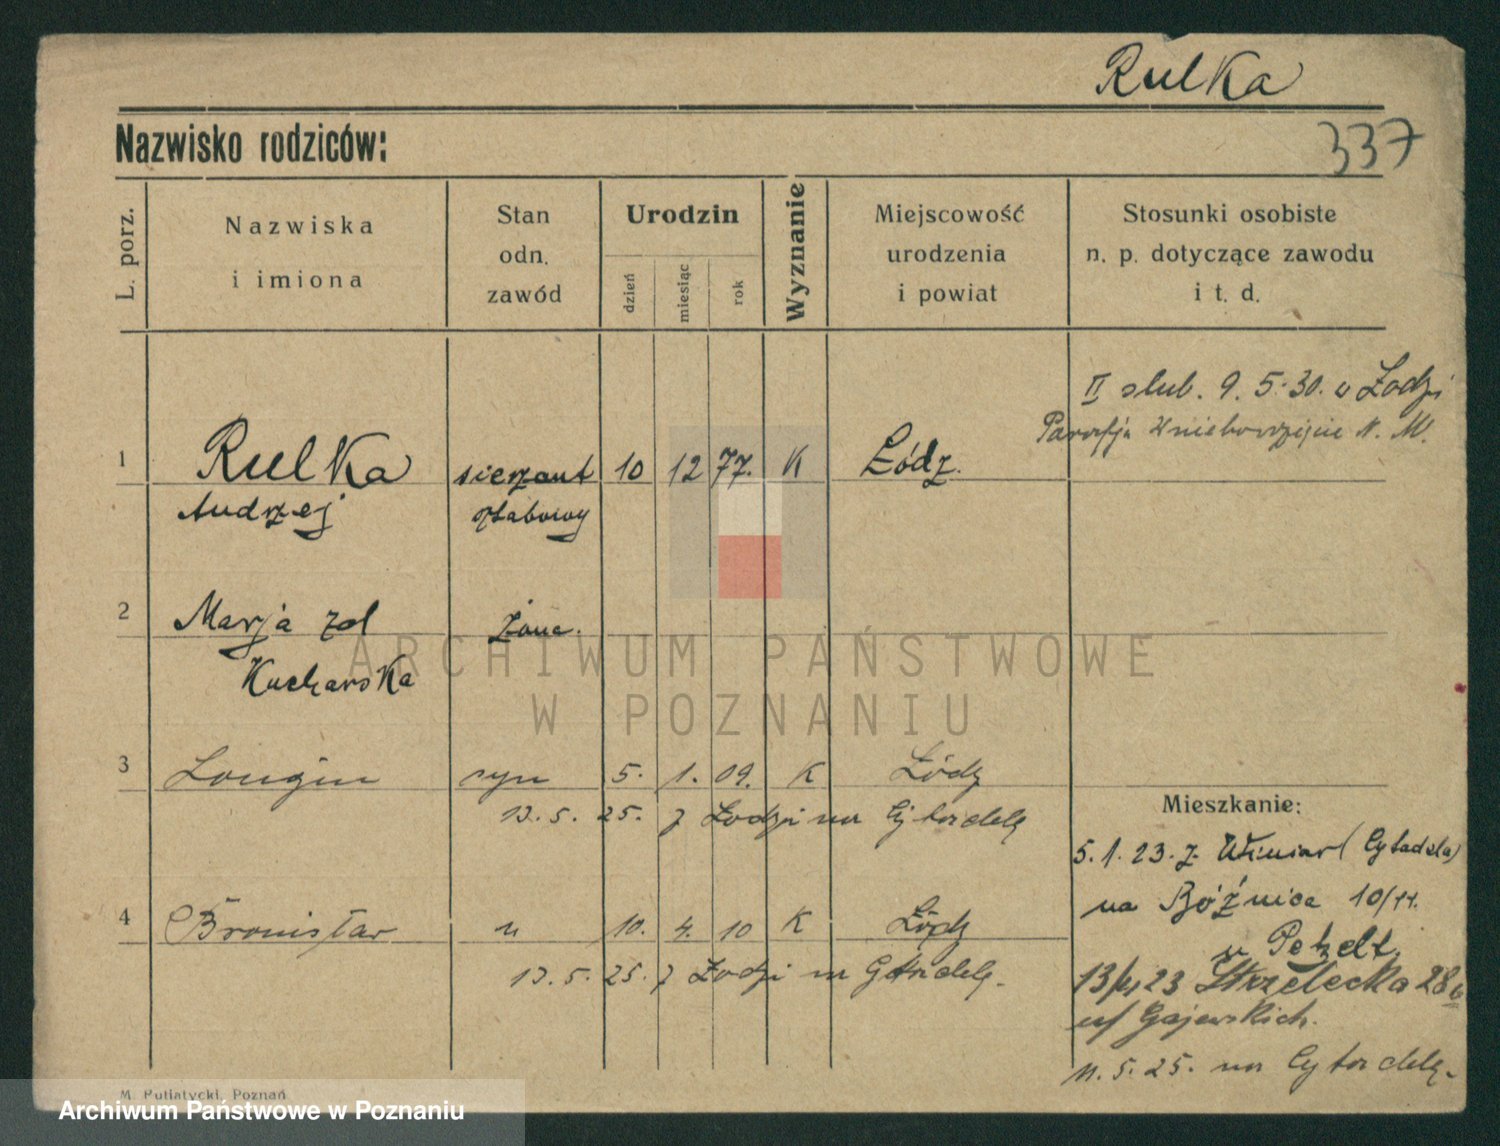 Rulka
Nazwisko rodziców:
337
L. porz.
Nazwiska
i imiona
Stan
odn.
zawód
Urodzin
dzień
miesiąc
rok
Wyznanie
Miejscowość
urodzenia
i powiat
Stosunki osobiste
n. p. dotyczące zawodu
i t. d.
II slub. 9. 5. 30. w Łodzi
Parafja Wniebowzięcie N. M.
1 Rulka sierzant 10 12 77. K Łódz.
Andrzej sztabowy
2 Marja zd żona.
Kucharska
ARCHIWUM PAŃSTWOWE
W POZNANIU
3 Longin syn 5. 1. 09. K Łódz
13. 5. 25. z Łodzi na Cytadelę
Mieszkanie:
5. 1. 23. z. Winiar (Cytadela)
na Bóźnica 10/11.
4 Bronisław " 10. 4. 10 K Łódz
13. 5. 25. z Łodzi na Cytadelę.
u Petzelt
23 Strzelecka 28
Gajewskich.
11. 5. 25. na Cytadelę.
M. Putiatycki, Poznań
Archiwum Państwowe w Poznaniu